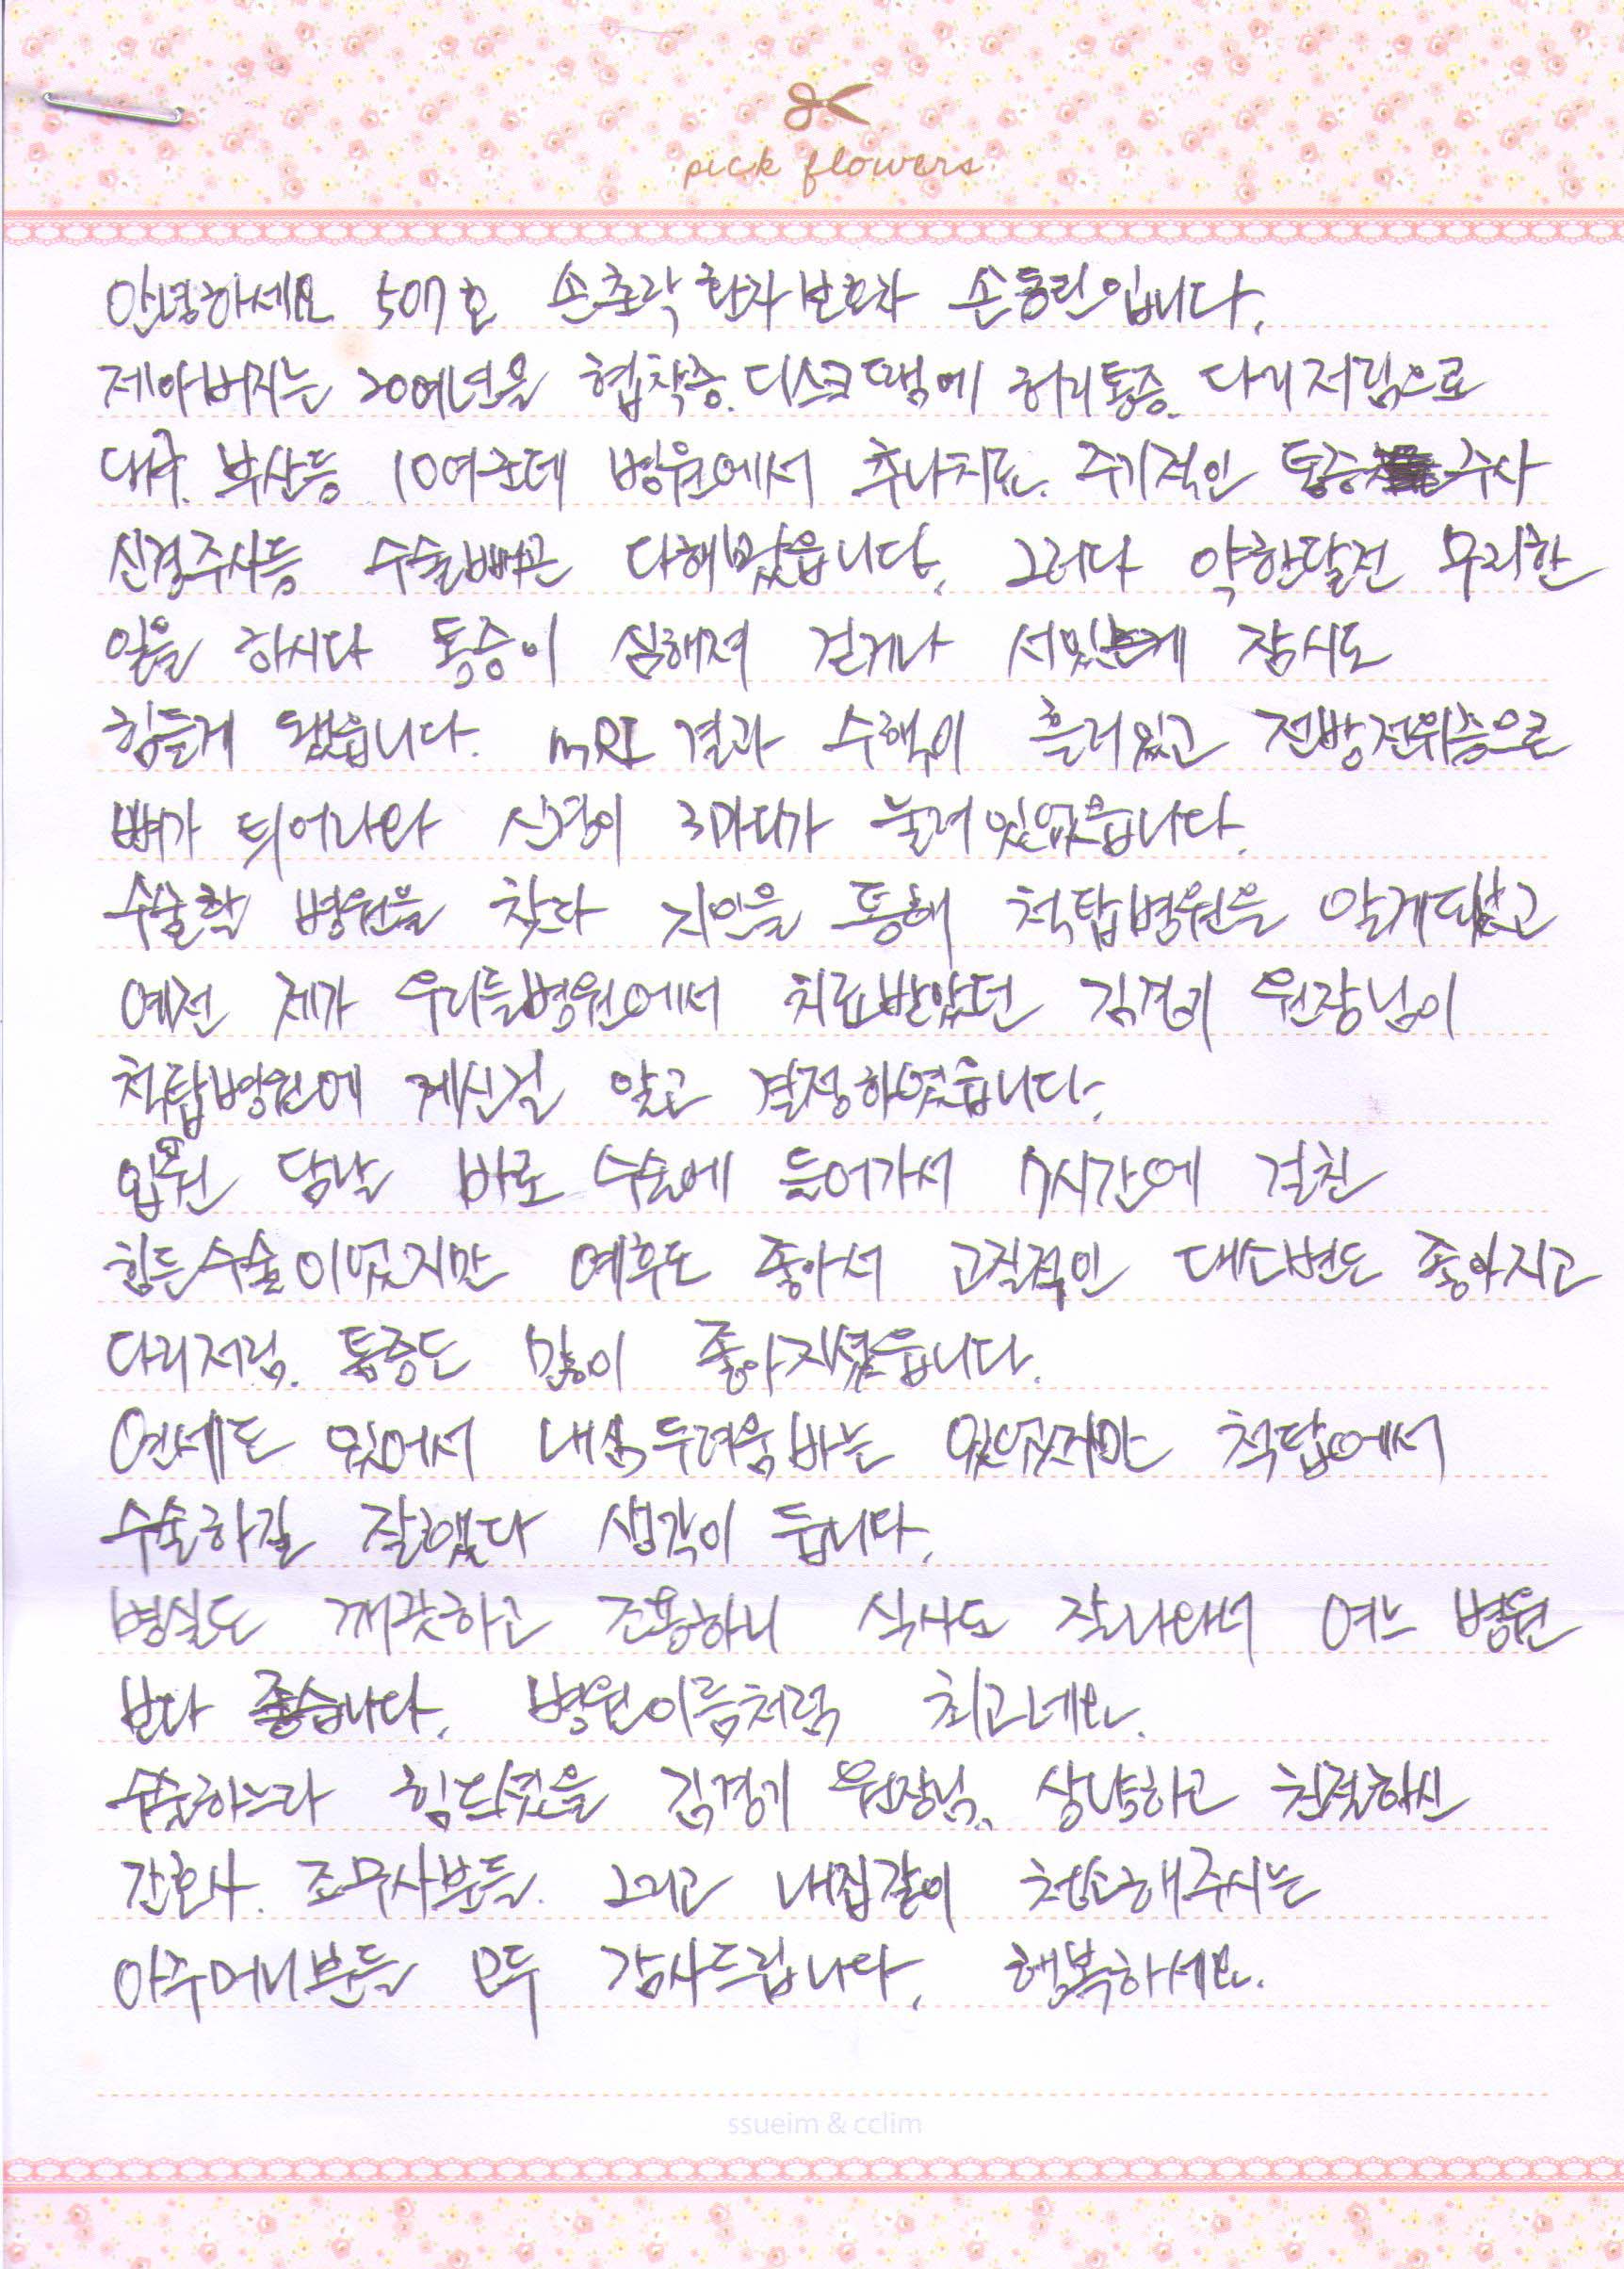 pick flowers
안녕하세요 507호 손초락 환자보호자 손동린입니다.
저희아버지는 20여년을 협착증. 디스크땜에 허리통증. 다리저림으로
대구. 부산등 10여군데 병원에서 추나치료. 주기적인 통증주사
신경주사등 수술빼곤 다해봤읍니다. 그러다 약한달전 무리한
일을 하시다 통증이 심해져 걷거나 서있는게 잠시도
힘들게 됐읍니다. MRI 결과 수핵이 흘러있고 전방전위증으로
뼈가 튀어나와 신경이 3마디가 눌려있었읍니다.
수술할 병원을 찾다 지인을 통해 척탑병원을 알게되었고
예전 제가 우리들병원에서 치료받았던 김경기 원장님이
척탑병원에 계신걸 알고 결정하였읍니다.
입원 담날 바로 수술에 들어가서 7시간에 걸친
힘든수술이었지만 예후도 좋아서 고질적인 대소변도 좋아지고
다리저림. 통증도 많이 좋아지셨읍니다.
연세도 있어서 내심두려움반는 있었지만 척탑에서
수술하길 잘했다 생각이 듭니다.
병실도 깨끗하고 조용하니 식사도 잘나와서 여느 병원
보다 좋습니다. 병원이름처럼 최고네요.
수술하느라 힘드셨을 김경기 원장님. 상냥하고 친절하신
간호사. 조무사분들. 그리고 내집같이 청소해주시는
아주머니분들 모두 감사드립니다. 행복하세요.
ssueim & cclim